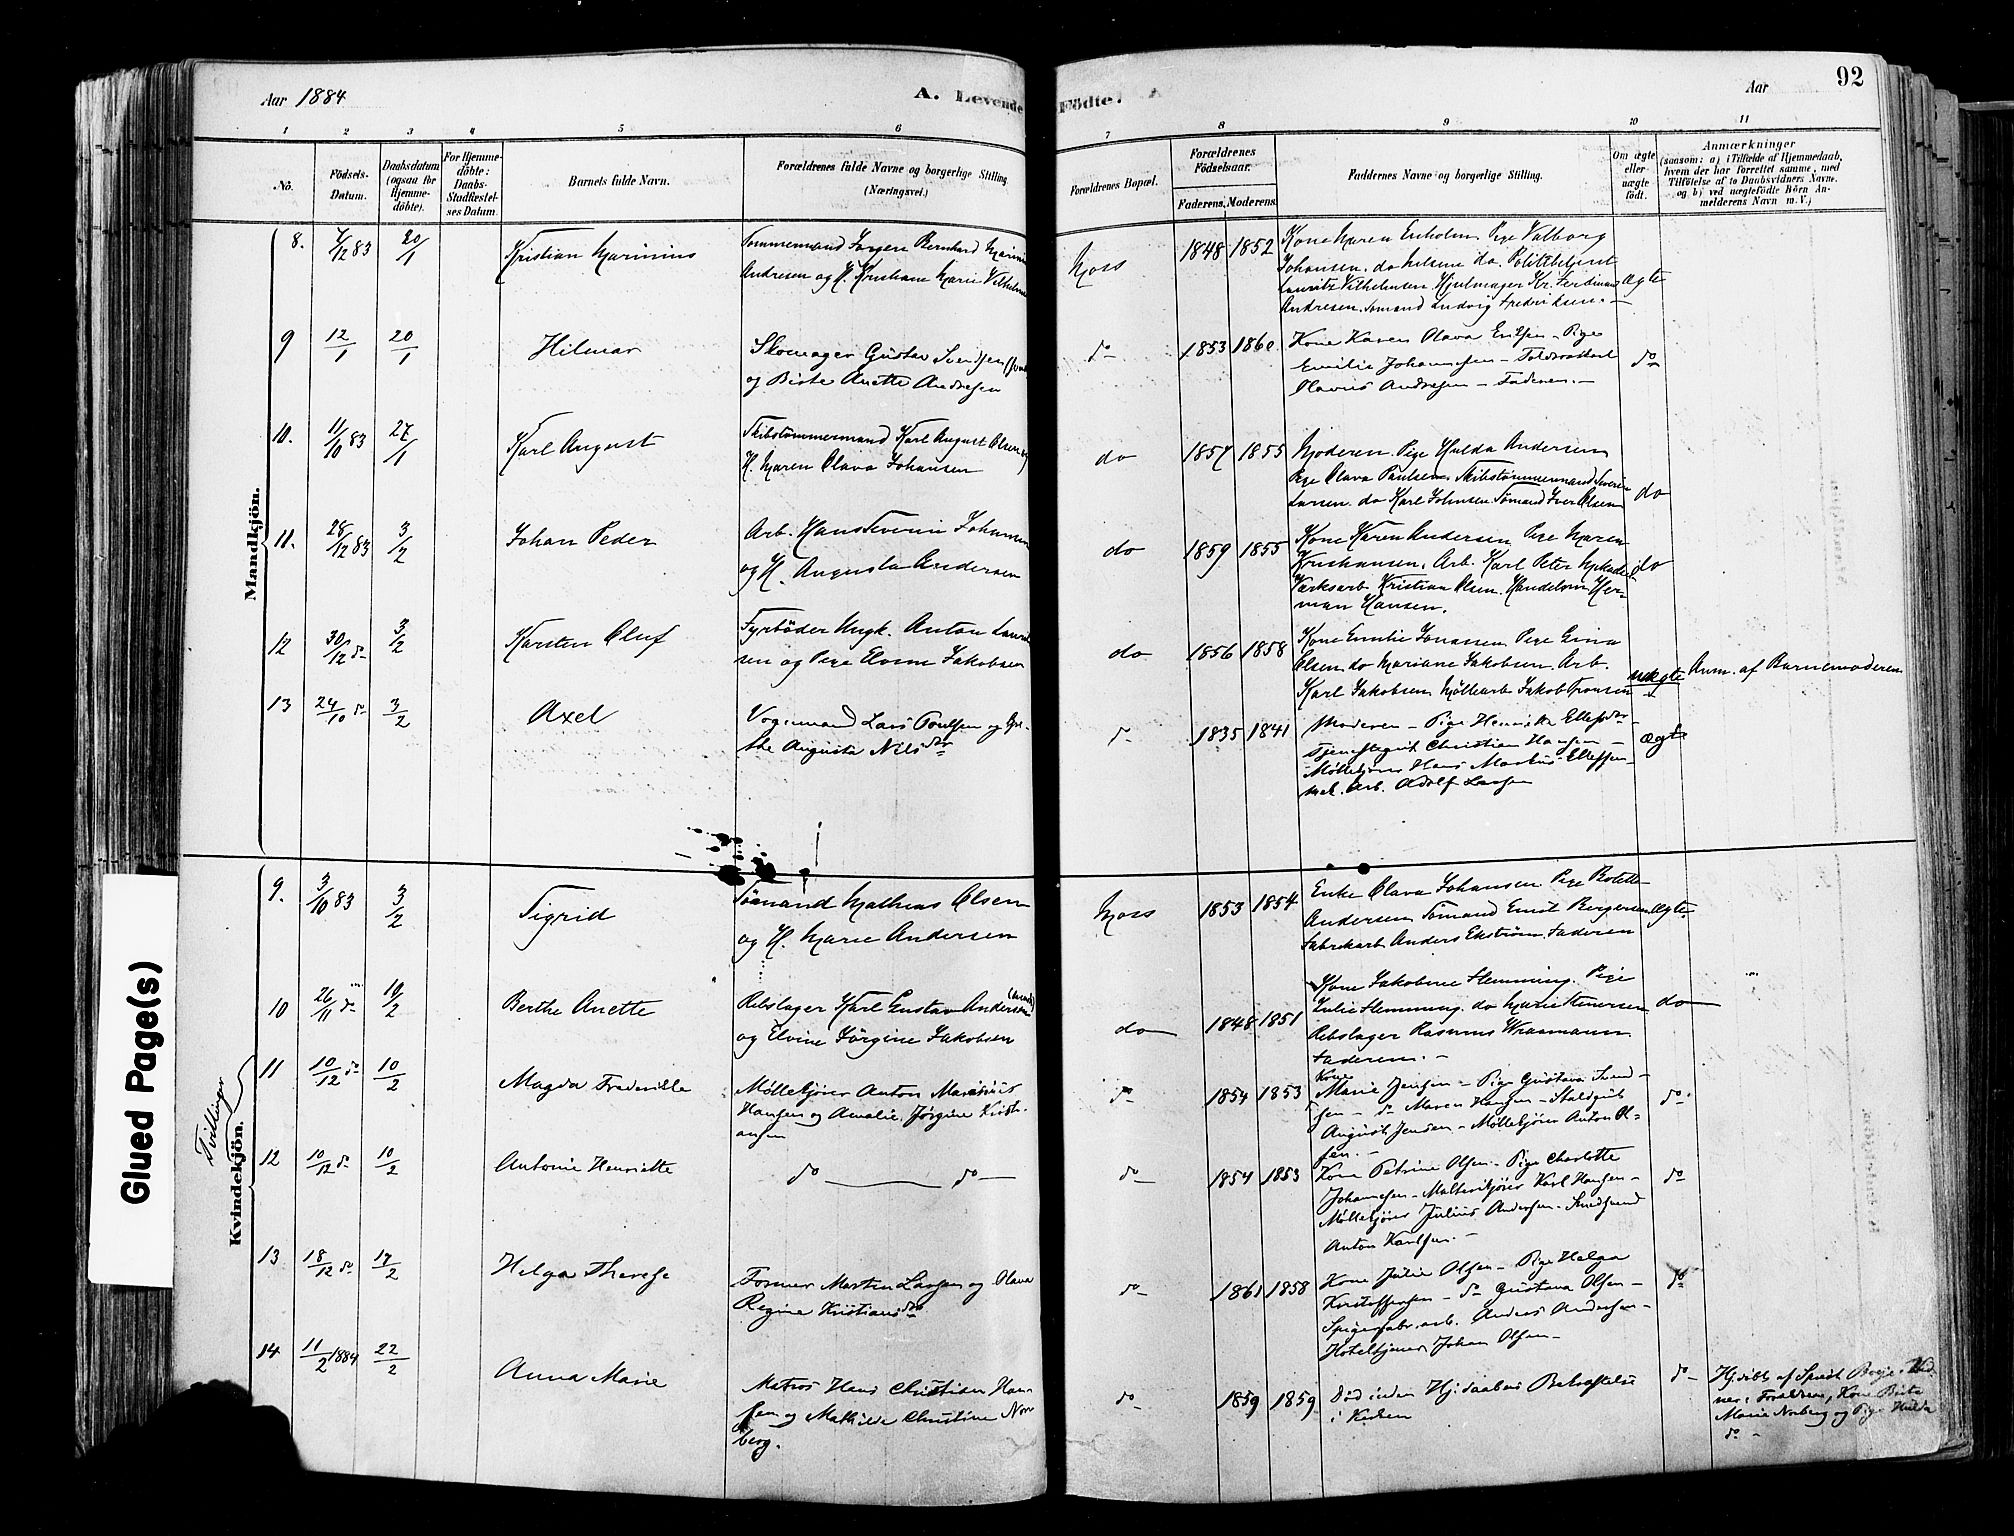 Aar 1884
A. Levende Födte.
Aar
92
1 2 3 4 5 6 7 8 9 10 11
No.
Födsels-Datum.
Daabsdatum (ogsaa for Hjemme-döbte).
For Hjemme-döbte: Daabs-Stadfæstel-ses Datum.
Barnets fulde Navn.
Forældrenes fulde Navne og borgerlige Stilling (Næringsvei.)
Forældrenes Bopæl.
Forældrenes Födselsaar.
Faderens. Moderens.
Faddernes Navne og borgerlige Stilling.
Om ægte eller uægte födt.
Anmærkninger
(saasom: a) i Tilfælde af Hjemmedaab, hvem der har forrettet samme, med Tilföielse af to Daabsvidners Navne. og b) ved uægtefödte Börn An-melderens Navn m. V.)
Mandkjön.
8. 7/12 83 20/1 Kristian Marinius
Tömmermand Jörgen Bernhard Marinius
Andresen og H. Kristiane Marie Vilhelmse
Moss 1848 1852
Kone Maren Enholm. Pige Valborg
Johansen. do Helene do. Politibetjent
Lauritz Vilhelmsen. Hjulmager Kr. Ferdinand
Andresen. Sömand Ludvig Fredriksen.
Ægte
9 12/1 20/1 Hilmar
Skomager Gustav Svendsen
og Birte Anette Andresen
do 1853 1860
Kone Karen Olava Eriksen - Pige
Emilie Johannesen - Toldroerkarl
Olavus Andresen - Faderen. -
do
10. 11/10 83 27/1 Karl August
Skibstömmermand Karl August Olsen og
H. Maren Olava Johansen
do 1857 1855
Moderen. Pige Hulda Andersen
Pige Olava Paulsen. Skibstömmermand Severin
Larsen. do Karl Johnsen. Sömand Iver Olsen
do
11. 28/12 83 3/2 Johan Peder
Arb. Hans Severin Johansen
og H. Augusta Andersen
do 1859 1855
Kone Karen Andersen Pige Maren
Kristiansen. Arb. Karl Peter
Værksarb. Kristian Olsen. Handelsm Her-
man Hansen.
do
12 30/12 do 3/2 Karsten Oluf
Fyrböder Ungk. Anton Laurit
sen og Pige Elvine Jakobsen
do 1856 1858
Kone Emilie Jonassen Pige Gina
Olsen do Mariane Jakobsen. Arb.
Karl Jakobsen Möllearb Jakob
uægte
Anm. af Barnemoderen
13 24/10 do 3/2 Axel
Vognmand Lars Poulsen og Gre-
the Augusta Nilsdr
do 1835 1841
Moderen - Pige Henriette Ellefsdr -
Tjenestegut Christian Hansen -
Möllekjörer Hans Markus Ellefsen
Arb. Adolf Larsen
Ægte
Kvindekjön.
Tvillinger
9. 3/10 83 3/2 Sigrid
Sömand Mathias Olsen
og H. Marie Andersen
Moss 1853 1854
Enke Olava Johansen Pige Botilde
Andersen Sömand Emil Bergersen
Fabrikarb Anders Ekström. Faderen
Ægte.
10 26/11 do 10/2 Berthe Anette
Rebslager Karl Gustav Andersen
og Elvine Jörgine Jakobsen
do 1848 1851
Kone Jakobine Flemming. Pige
Julie Flemming. do Marie Stenersen
Rebslager Rasmus Wraamann
Faderen. -
do
11 10/12 do 10/2 Magda Frederikke
Möllekjörer Anton Marinius
Hansen og Amalie Jörgine Kristi-
ansen
do 1854 1853
Kone
Marie Jensen - Pige Gustava Svend-
sen - do Maren Hansen - Staldgut
August Jensen - Möllekjörer Anton Ol-
sen. -
do.
12 10/12 do 10/2 Antonie Henriette
do do
do 1854 1853
Kone Petrine Olsen - Pige Charlotte
Johannesen - Maltkjörer Karl Hansen -
Möllekjörer Julius Andersen - Smedsvend
Anton Karlsen. -
do
13 18/12 do 17/2 Helga Therese
Former Martin Larsen og Olava
Regine Kristiansdr
do 1861 1858
Kone Julie Olsen - Pige Helga
Kristoffersen - do Gustava Olsen -
Spigerfabr. arb. Anders Andersen -
Hoteltjener Johan Olsen -
do
14 11/2 1884 22/2 Anna Marie
Matros Hans Christian Han-
sen og Mathilde Christine Nor-
berg.
do 1859 1859
Död inden Hj.daabens Bekræftelse
i Kirken
do
Hj.döbt af Borge. Vid-
ner: Forældrene, Kone Birte
Marie Norberg og Pige Hulda
do -
Glued Page(s)